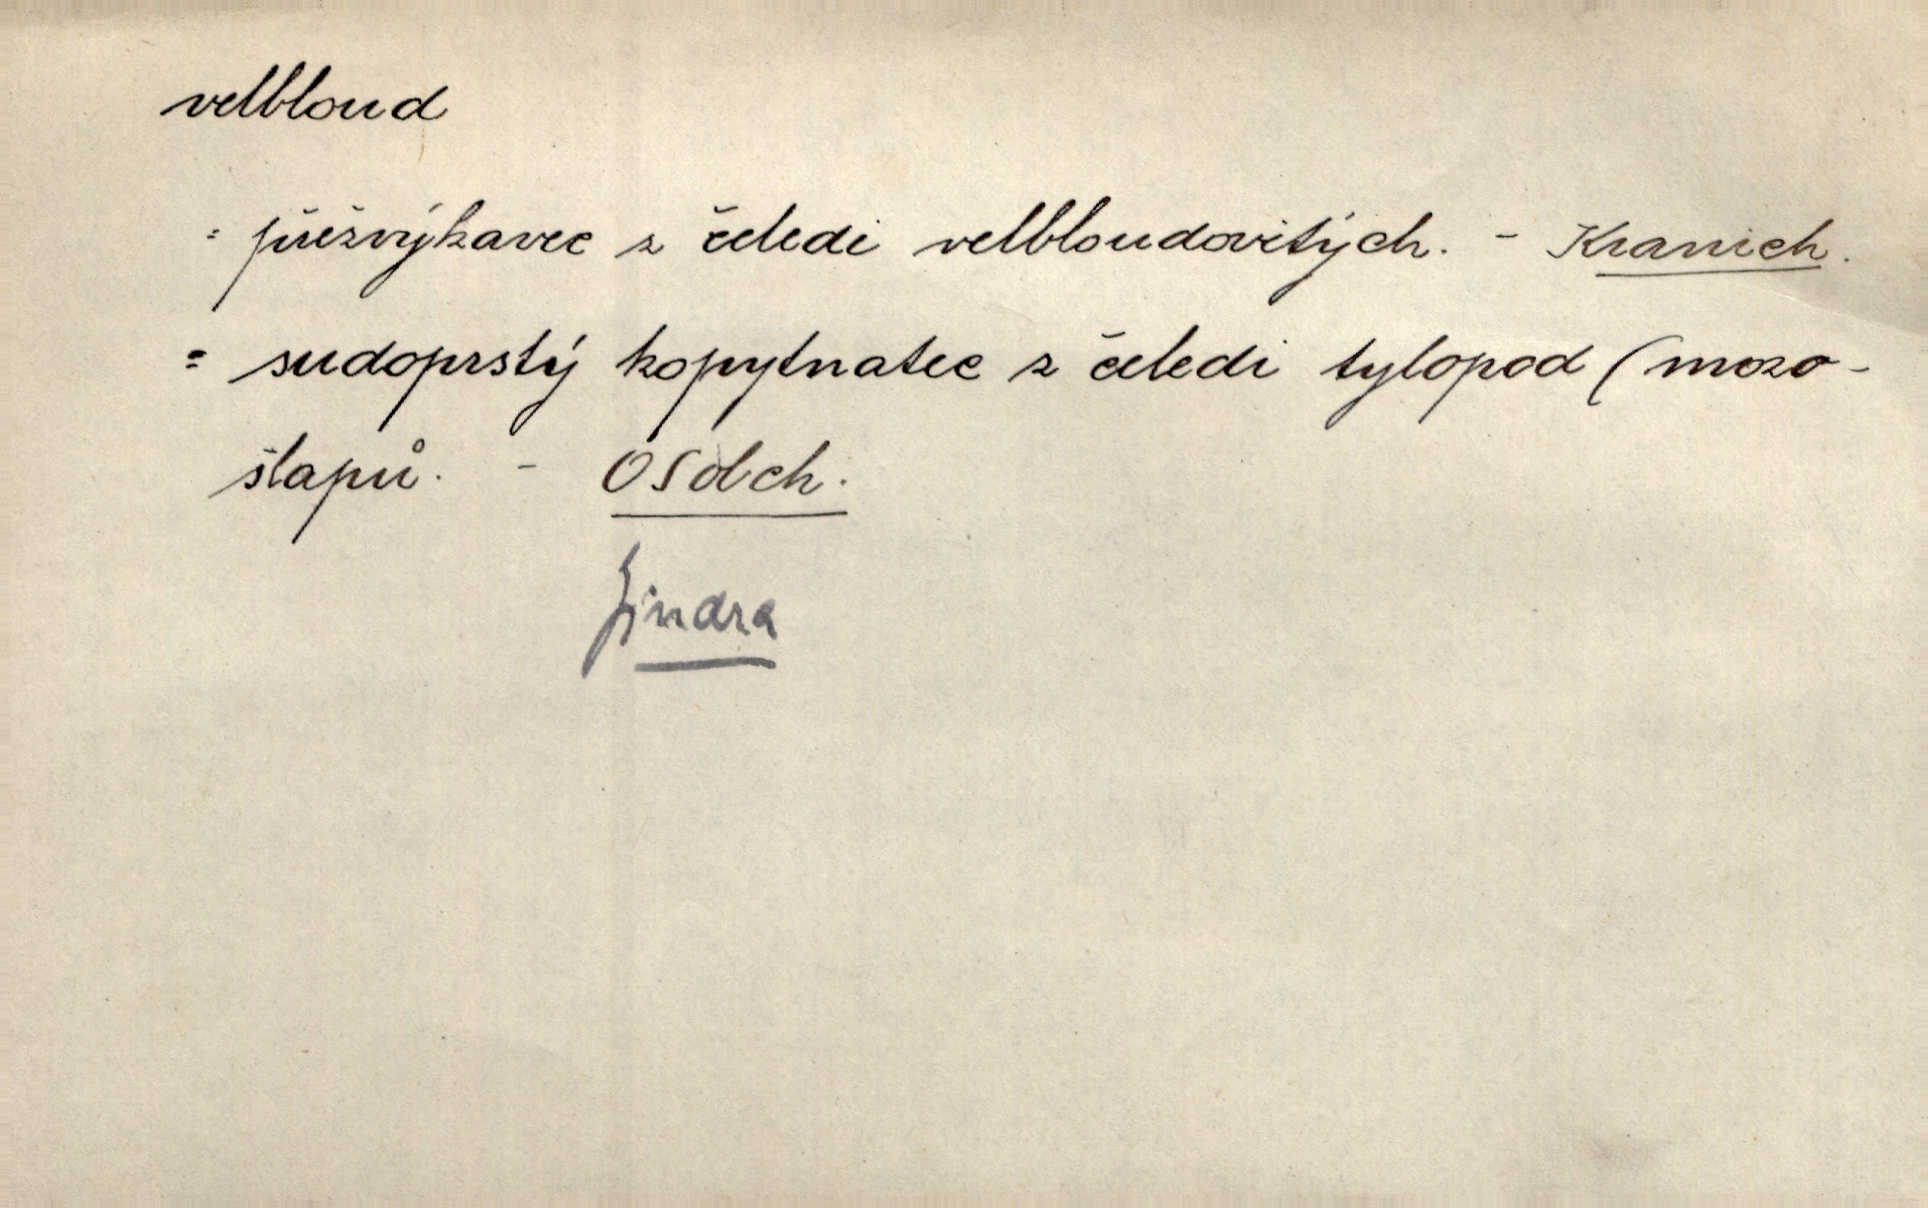 velbloud
= přežvýkavec z čeledi velbloudovitých. - Kranich.
= sudoprstý kopytnatec z čeledi tylopod (mozo-
šlapů. - OSObch.
Jindra